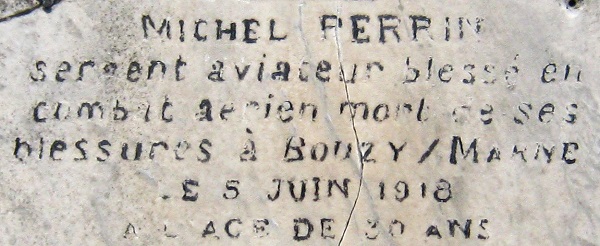 MICHEL PERRIN
sergent aviateur blessé en
combat aerien mort de ses
blessures à BOUZY/MARNE
LE 5 JUIN 1918
A L'AGE DE 30 ANS